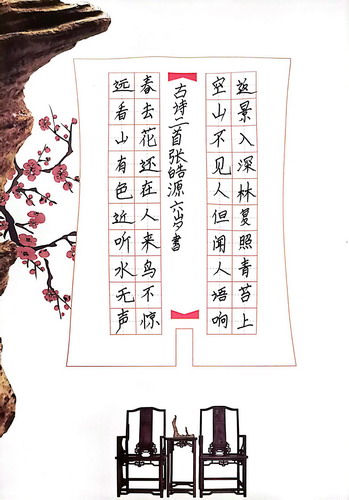 远看山有色近听水无声
春去花还在人来鸟不惊
古诗二首张皓源六岁书
空山不见人但闻人语响
返景入深林复照青苔上